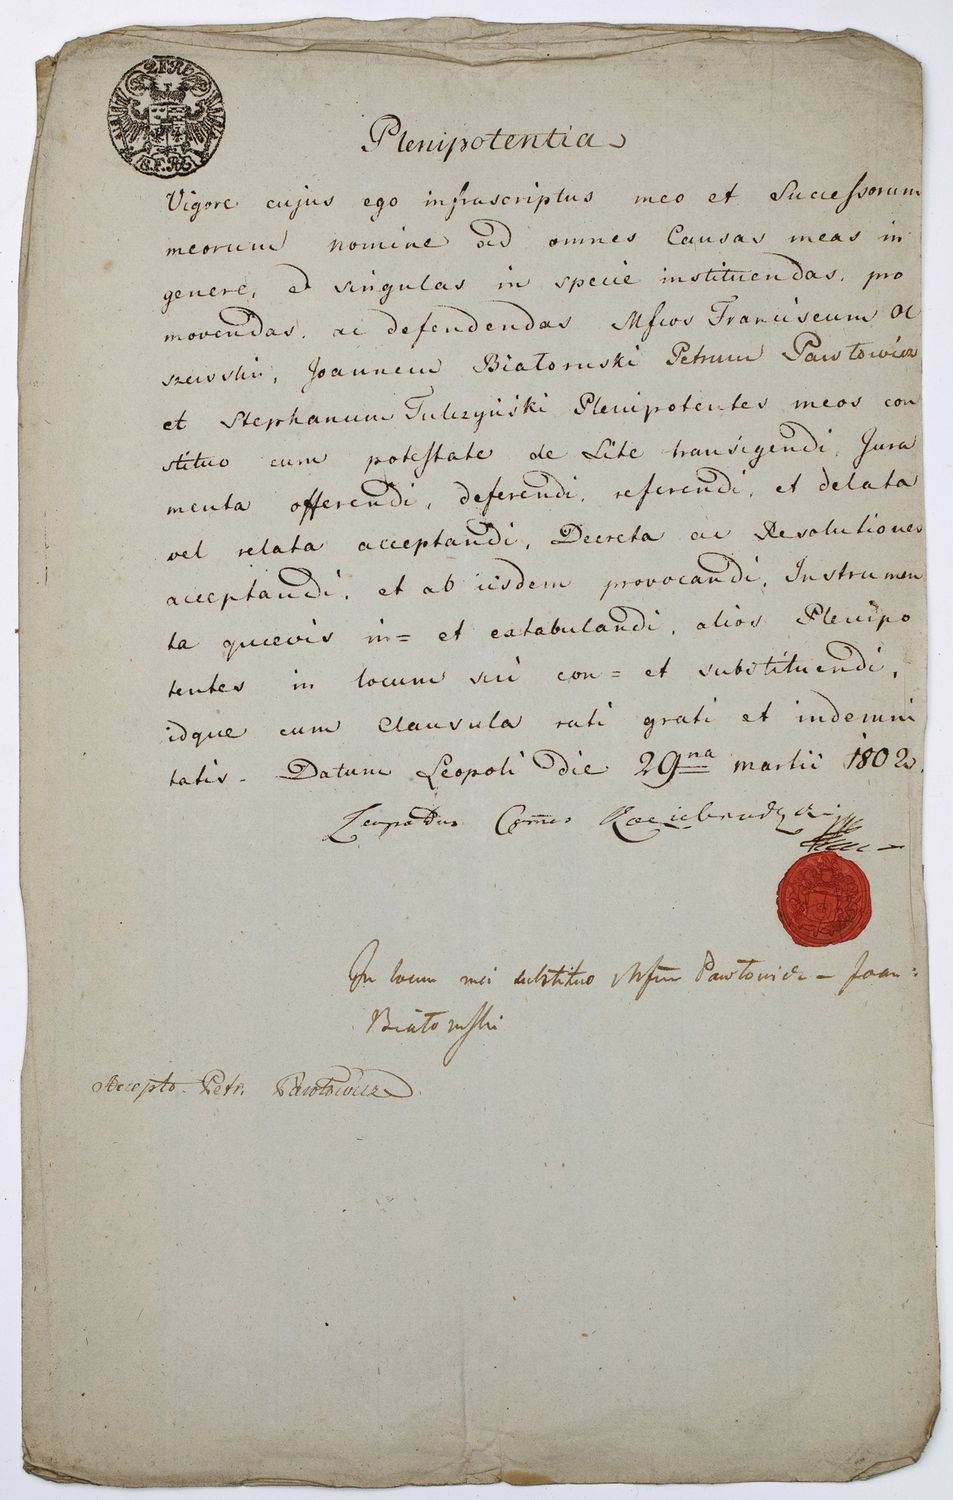 2FRt
8.F.Rt
Plenipotentia
Vigore cujus ego infrascriptus meo et Successorum
meorum nomine ad omnes Causas meas in
genere, et singulas in specie instituendas, pro
movendas, ac defendendas Mfcos Franciscum O
Joannem Białoruski Petrum Pawłowicz
et Stephanum Tulczyński Plenipotentes meos con
stituo cum potestate de Lite transigendi, Jura
menta offerendi, deferendi, referendi, et delata
vel relata acceptandi, Decreta ac Resolutiones
acceptandi, et ab iisdem provocandi, Instrumen
ta quaevis in= et extabulandi, alios Plenipo
tentes in locum sui con= et substituendi,
idque cum Clausula rati grati et indemni
tatis. Datum Leopoli die 29na martii 1802.
Leopoldus Comes
In locum mei substituo Mfcum Pawłowicz – Joan:
Białoruski
Accepto. Petr. Pawłowicz